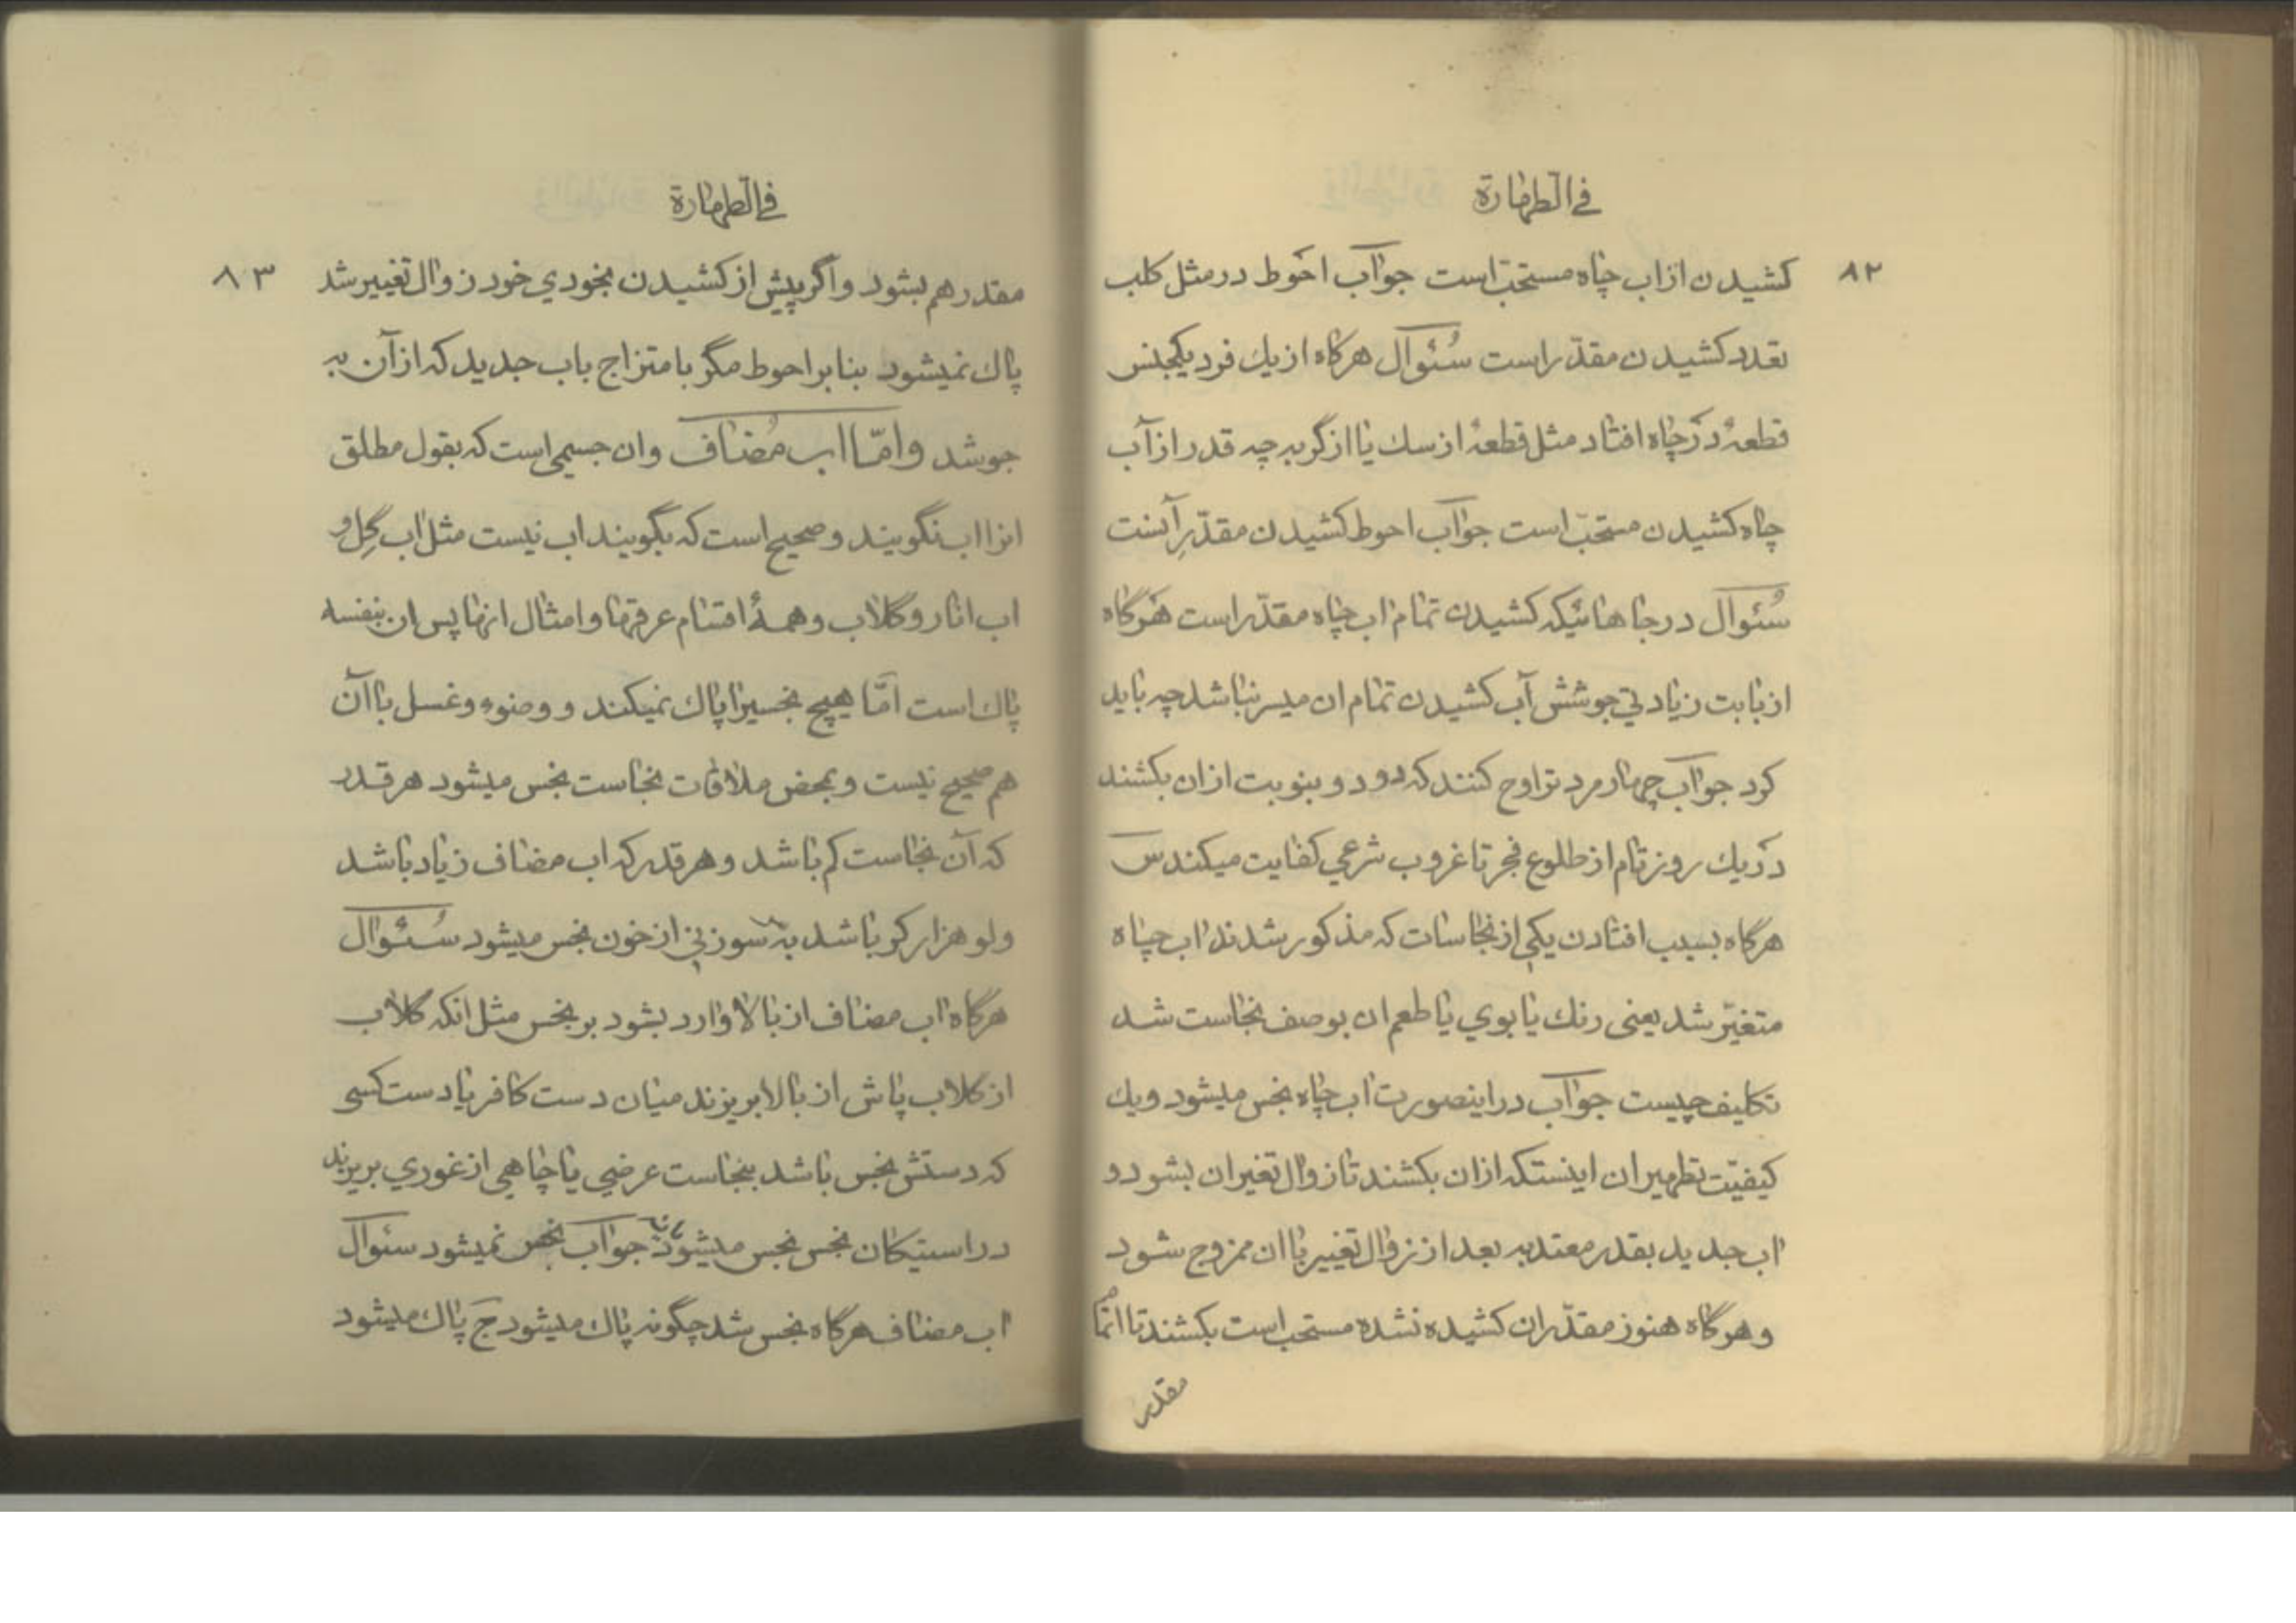 في الطهارة
۸۲
كشيدن از اب چاه مستحبّ است جواب احوط در مثل كلب
تعدد كشيدن مقدّر است سُئوال هرگاه از يك فرد يكجنس
قطعهٔ در چاه افتاد مثل قطعهٔ از سك يا از گربه چه قدر از آب
چاه كشيدن مستحبّ است جواب احوط كشيدن مقدّرِ آنست
سُئوال در جاهائيكه كشيدن تمام اب چاه مقدّر است هرگاه
از بابت زيادتي جوشش آب كشيدن تمام ان ميسر نباشد چه بايد
كرد جواب چهار مرد تراوح كنند كه دو دو بنوبت از ان بكشند
در يك روز تام از طلوع فجر تا غروب شرعي كفايت ميكند س
هرگاه بسبب افتادن يكي از نجاسات كه مذكور شدند اب چاه
متغيّر شد يعنى رنك يا بوي يا طعم ان بوصف نجاست شد
تكليف چيست جواب در اينصورت اب چاه نجس ميشود ويك
كيفيّت تطهير ان اينستكه از ان بكشند تا زوال تغير ان بشود و
اب جديد بقدر معتدبه بعد از زوال تغيير با ان ممزوج شود
و هرگاه هنوز مقدّر ان كشيده نشده مستحب است بكشند تا اتمام
مقدر
في الطهارة
۸۳
مقدر هم بشود و اگر پيش از كشيدن بخودي خود زوال تغيير شد
پاك نميشود بنابر احوط مگر بامتزاج باب جديد كه از آن به
جوشد و امّا اب مُضاف و ان جسمي است كه بقول مطلق
انرا اب نگويند و صحيح است كه بگويند اب نيست مثل اب گِل و
اب انار و گلاب و همهٔ اقسام عرقها و امثال انها پس ان بنفسه
پاك است امّا هيچ نجسيرا پاك نميكند و وضوء و غسل با آن
هم صحيح نيست و بمحض ملاقات نجاست نجس ميشود هر قدر
كه آن نجاست كم باشد و هر قدر كه اب مضاف زياد باشد
ولو هزار كر باشد به سر سوزني از خون نجس ميشود سُئوال
هرگاه اب مضاف از بالا وارد بشود بر نجس مثل انكه گلاب
از گلاب پاش از بالا بريزند ميان دست كافر يا دست كسى
كه دستش نجس باشد بنجاست عرضي يا چاهي از غوري بريزند
در استيكان نجس نجس ميشود يا نه جواب نجس نميشود سئوال
اب مضاف هرگاه نجس شد چگونه پاك ميشود ج پاك ميشود